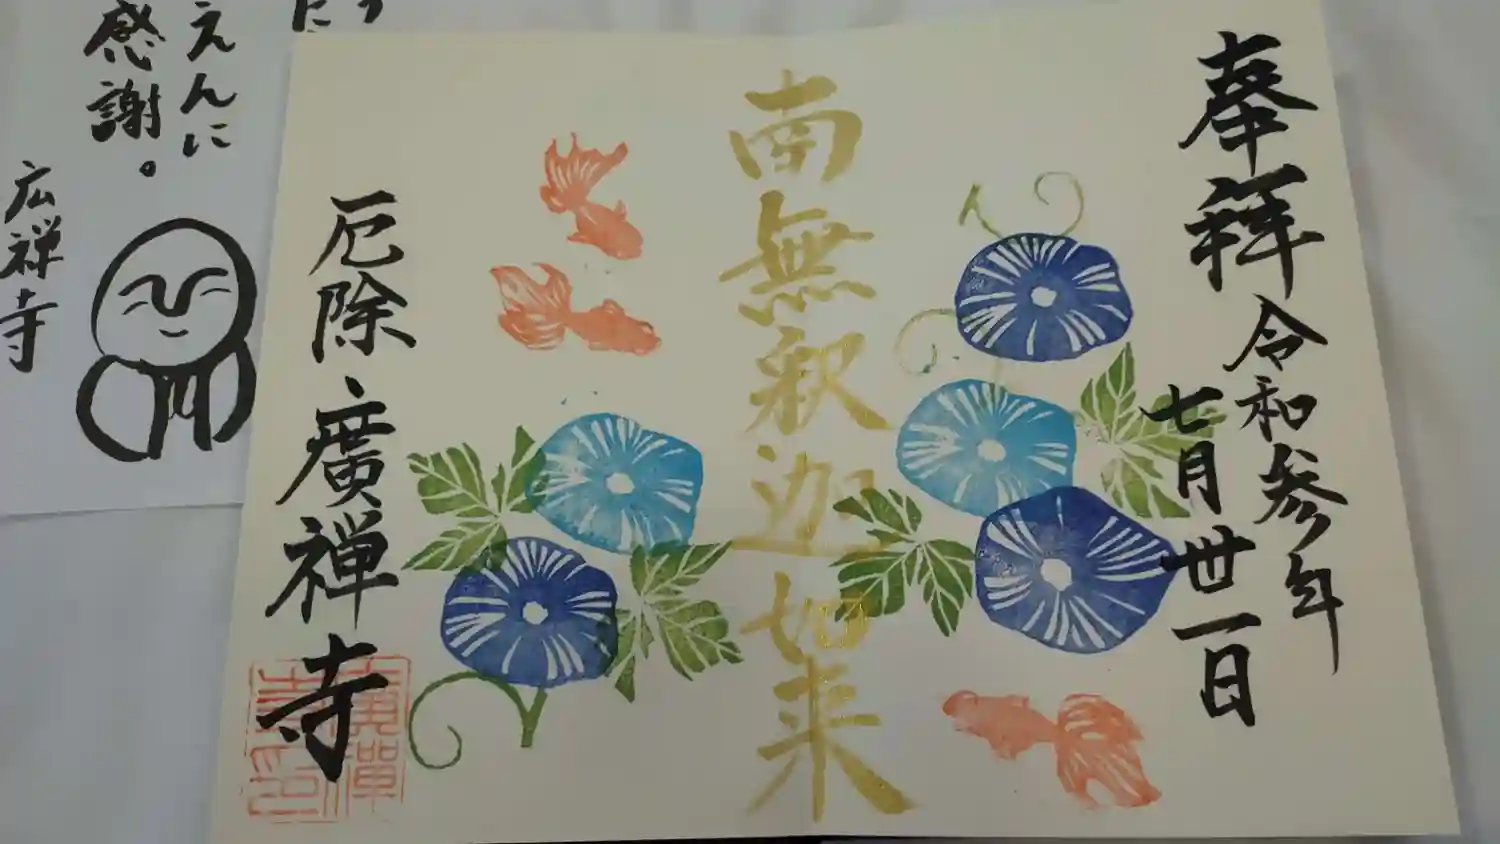 奉拝
令和参年
七月丗一日
南無釈迦如来
厄除廣禅寺
えんに
感謝。
広禅寺